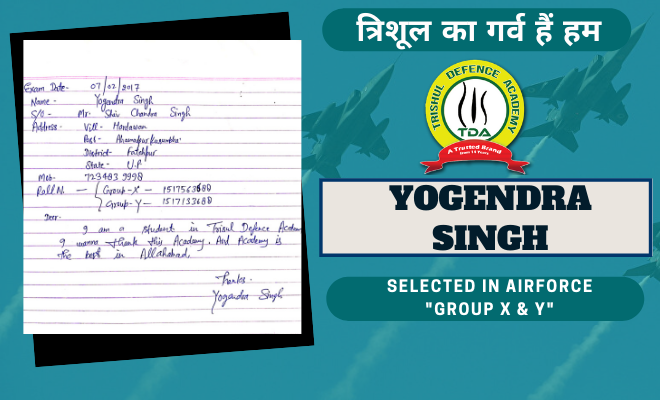 Exam Date- 07/02/2017
Name - Yogendra Singh
S/O - Mr. Shiv Chandra Singh
Address- Vill- Hardawan
Post-
District - Fatehpur
State - U.P
Mob- 723483 9998
Roll N. - Group-X- 1517563680
Group-Y- 1517133680
Dear.
I am a student in Trisul Defence Academ
I wanna thank this Academy. And Academy is
the best in Allahabad.
Thanks.
Yogendra Singh
त्रिशूल का गर्व हैं हम
TRISHUL DEFENCE ACADEMY
TDA
A Trusted Brand
from 14 Years
YOGENDRA
SINGH
SELECTED IN AIRFORCE
"GROUP X & Y"